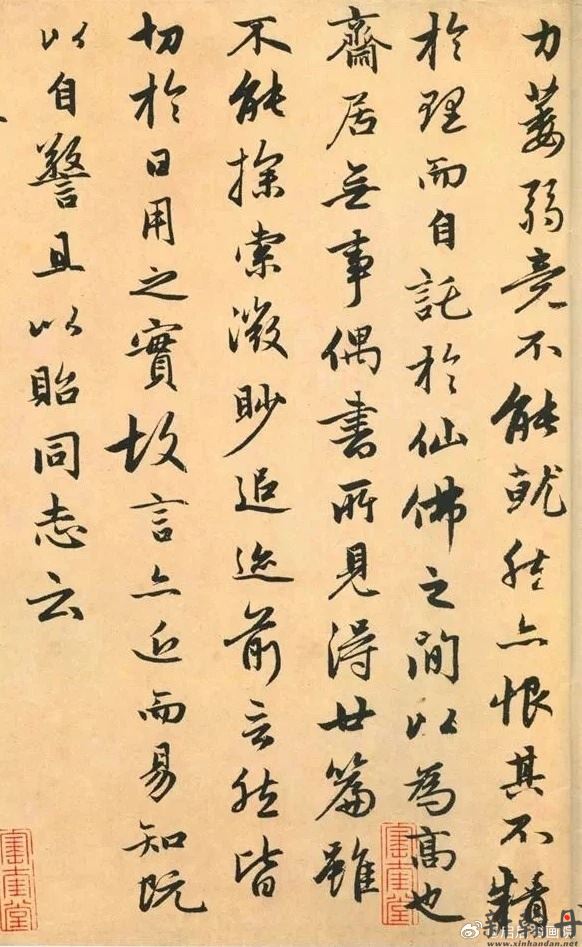 力萎弱竟不能就然亦恨其不精
於理而自託於仙佛之間以為高也
齋居無事偶書所見得廿篇雖
不能探索微眇追迹前言然皆
切於日用之實故言亦近而易知既
以自警且以貽同志云
www.xinhandan.net